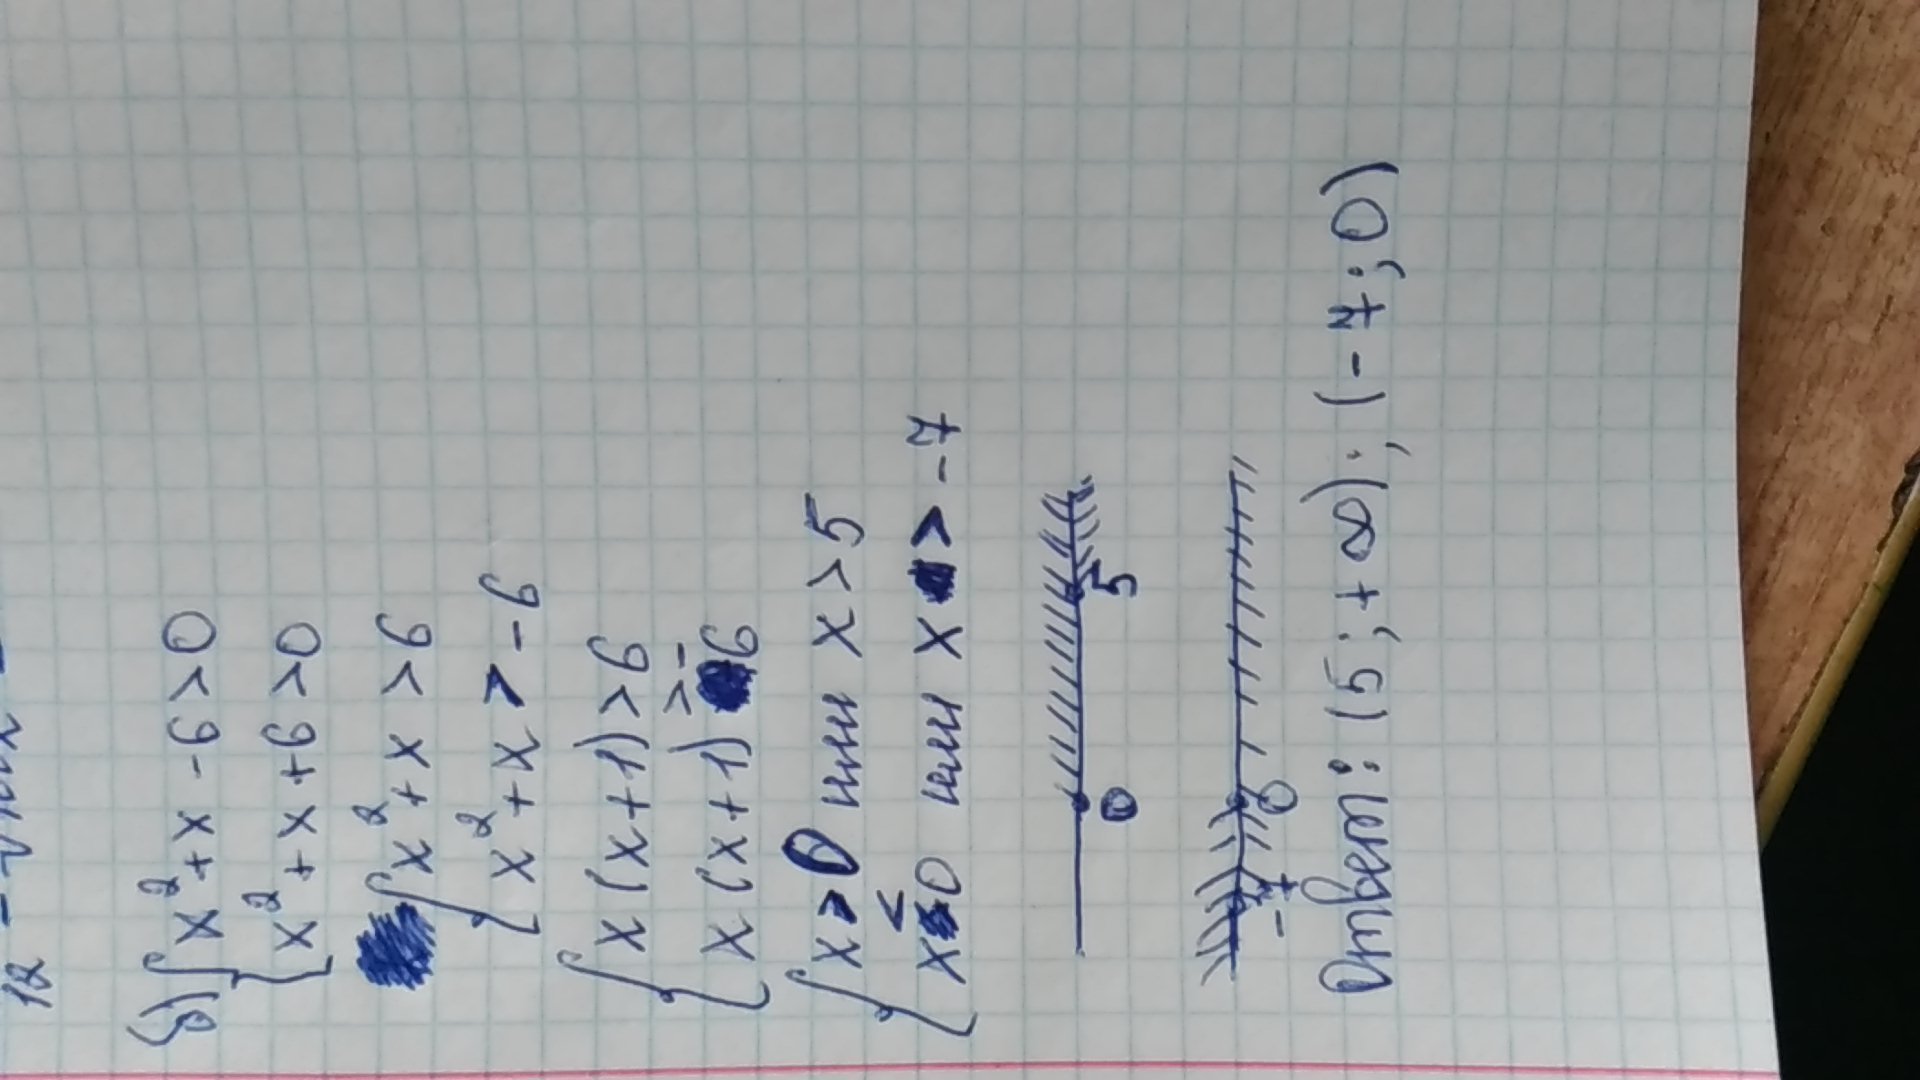 б) { x² + x - 6 > 0
{ x² + x + 6 > 0
{ x² + x > 6
{ x² + x > -6
{ x(x+1) > 6
{ x(x+1) > -6
{ x > 0 или x > 5
{ x < 0 или x > -7
0 5
-7 0
Ответ: (5; +∞); (-7; 0)